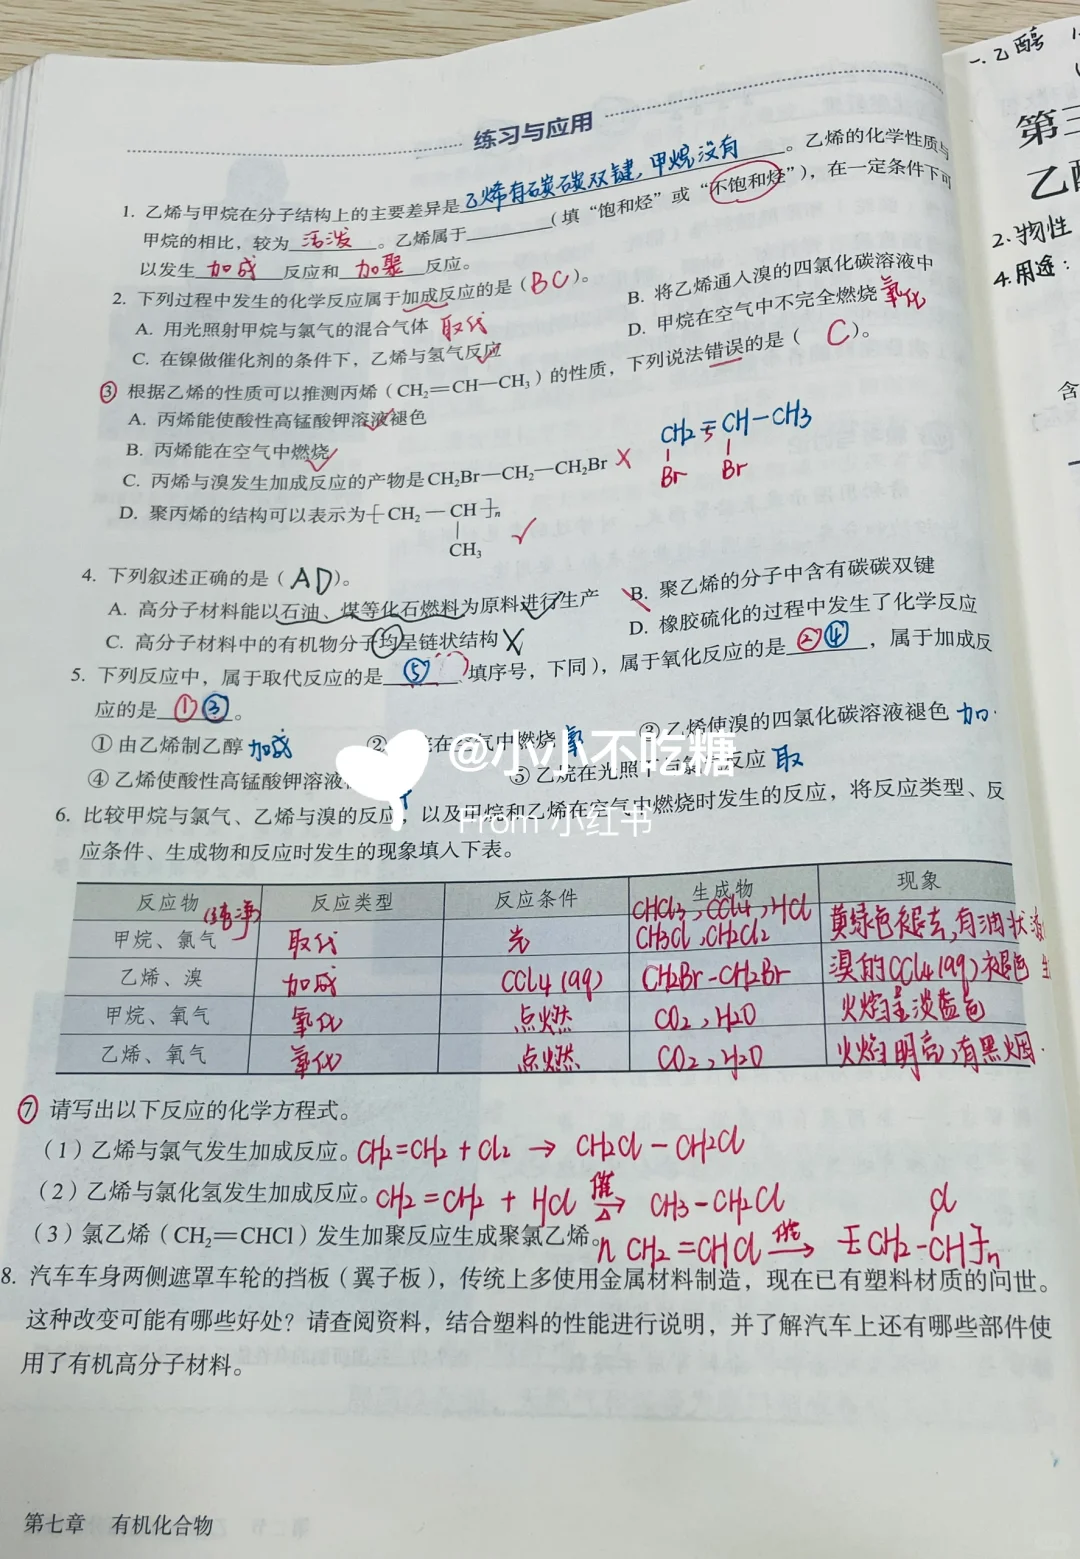 一.乙醇
第三
乙醇
2.物性
4.用途:
含
练习与应用
1. 乙烯与甲烷在分子结构上的主要差异是乙烯有碳碳双键,甲烷没有。乙烯的化学性质与
甲烷的相比,较为活泼。乙烯属于______(填“饱和烃”或“不饱和烃”),在一定条件下可
以发生加成反应和加聚反应。
2. 下列过程中发生的化学反应属于加成反应的是(BC)。
A. 用光照射甲烷与氯气的混合气体 取代
B. 将乙烯通入溴的四氯化碳溶液中
C. 在镍做催化剂的条件下,乙烯与氢气反应
D. 甲烷在空气中不完全燃烧 氧化
③ 根据乙烯的性质可以推测丙烯(CH₂=CH—CH₃)的性质,下列说法错误的是(C)。
A. 丙烯能使酸性高锰酸钾溶液褪色
B. 丙烯能在空气中燃烧
C. 丙烯与溴发生加成反应的产物是CH₂Br—CH₂—CH₂Br ×
CH2=CH-CH3
Br Br
D. 聚丙烯的结构可以表示为[CH₂—CH]ₙ ✓
CH₃
4. 下列叙述正确的是(AD)。
A. 高分子材料能以石油、煤等化石燃料为原料进行生产
B. 聚乙烯的分子中含有碳碳双键
C. 高分子材料中的有机物分子均呈链状结构 X
D. 橡胶硫化的过程中发生了化学反应
5. 下列反应中,属于取代反应的是⑤填序号,下同),属于氧化反应的是②④,属于加成反
应的是①③。
① 由乙烯制乙醇 加成
② 烷在空气中燃烧 氧
③ 乙烯使溴的四氯化碳溶液褪色 加.
④ 乙烯使酸性高锰酸钾溶液
⑤ 乙烷在光照下与氯气反应 取
@小小不吃糖
From 小红书
6. 比较甲烷与氯气、乙烯与溴的反应,以及甲烷和乙烯在空气中燃烧时发生的反应,将反应类型、反
应条件、生成物和反应时发生的现象填入下表。
反应物 反应类型 反应条件 生成物 现象
甲烷、氯气(纯净) 取代 光 CHCl3,CCl4,HCl CH3Cl,CH2Cl2 黄绿色褪去,有油状液
乙烯、溴 加成 CCl4(aq) CH2Br-CH2Br 溴的CCl4(aq)褪色
甲烷、氧气 氧化 点燃 CO2,H2O 火焰呈淡蓝色
乙烯、氧气 氧化 点燃 CO2,H2O 火焰明亮,有黑烟.
⑦ 请写出以下反应的化学方程式。
(1)乙烯与氯气发生加成反应。CH2=CH2+Cl2 → CH2Cl-CH2Cl
(2)乙烯与氯化氢发生加成反应。CH2=CH2+HCl 催 △ → CH3-CH2Cl
(3)氯乙烯(CH₂=CHCl)发生加聚反应生成聚氯乙烯。n CH2=CHCl 催 → [CH2-CH]n
Cl
8. 汽车车身两侧遮罩车轮的挡板(翼子板),传统上多使用金属材料制造,现在已有塑料材质的问世。
这种改变可能有哪些好处?请查阅资料,结合塑料的性能进行说明,并了解汽车上还有哪些部件使
用了有机高分子材料。
第七章 有机化合物